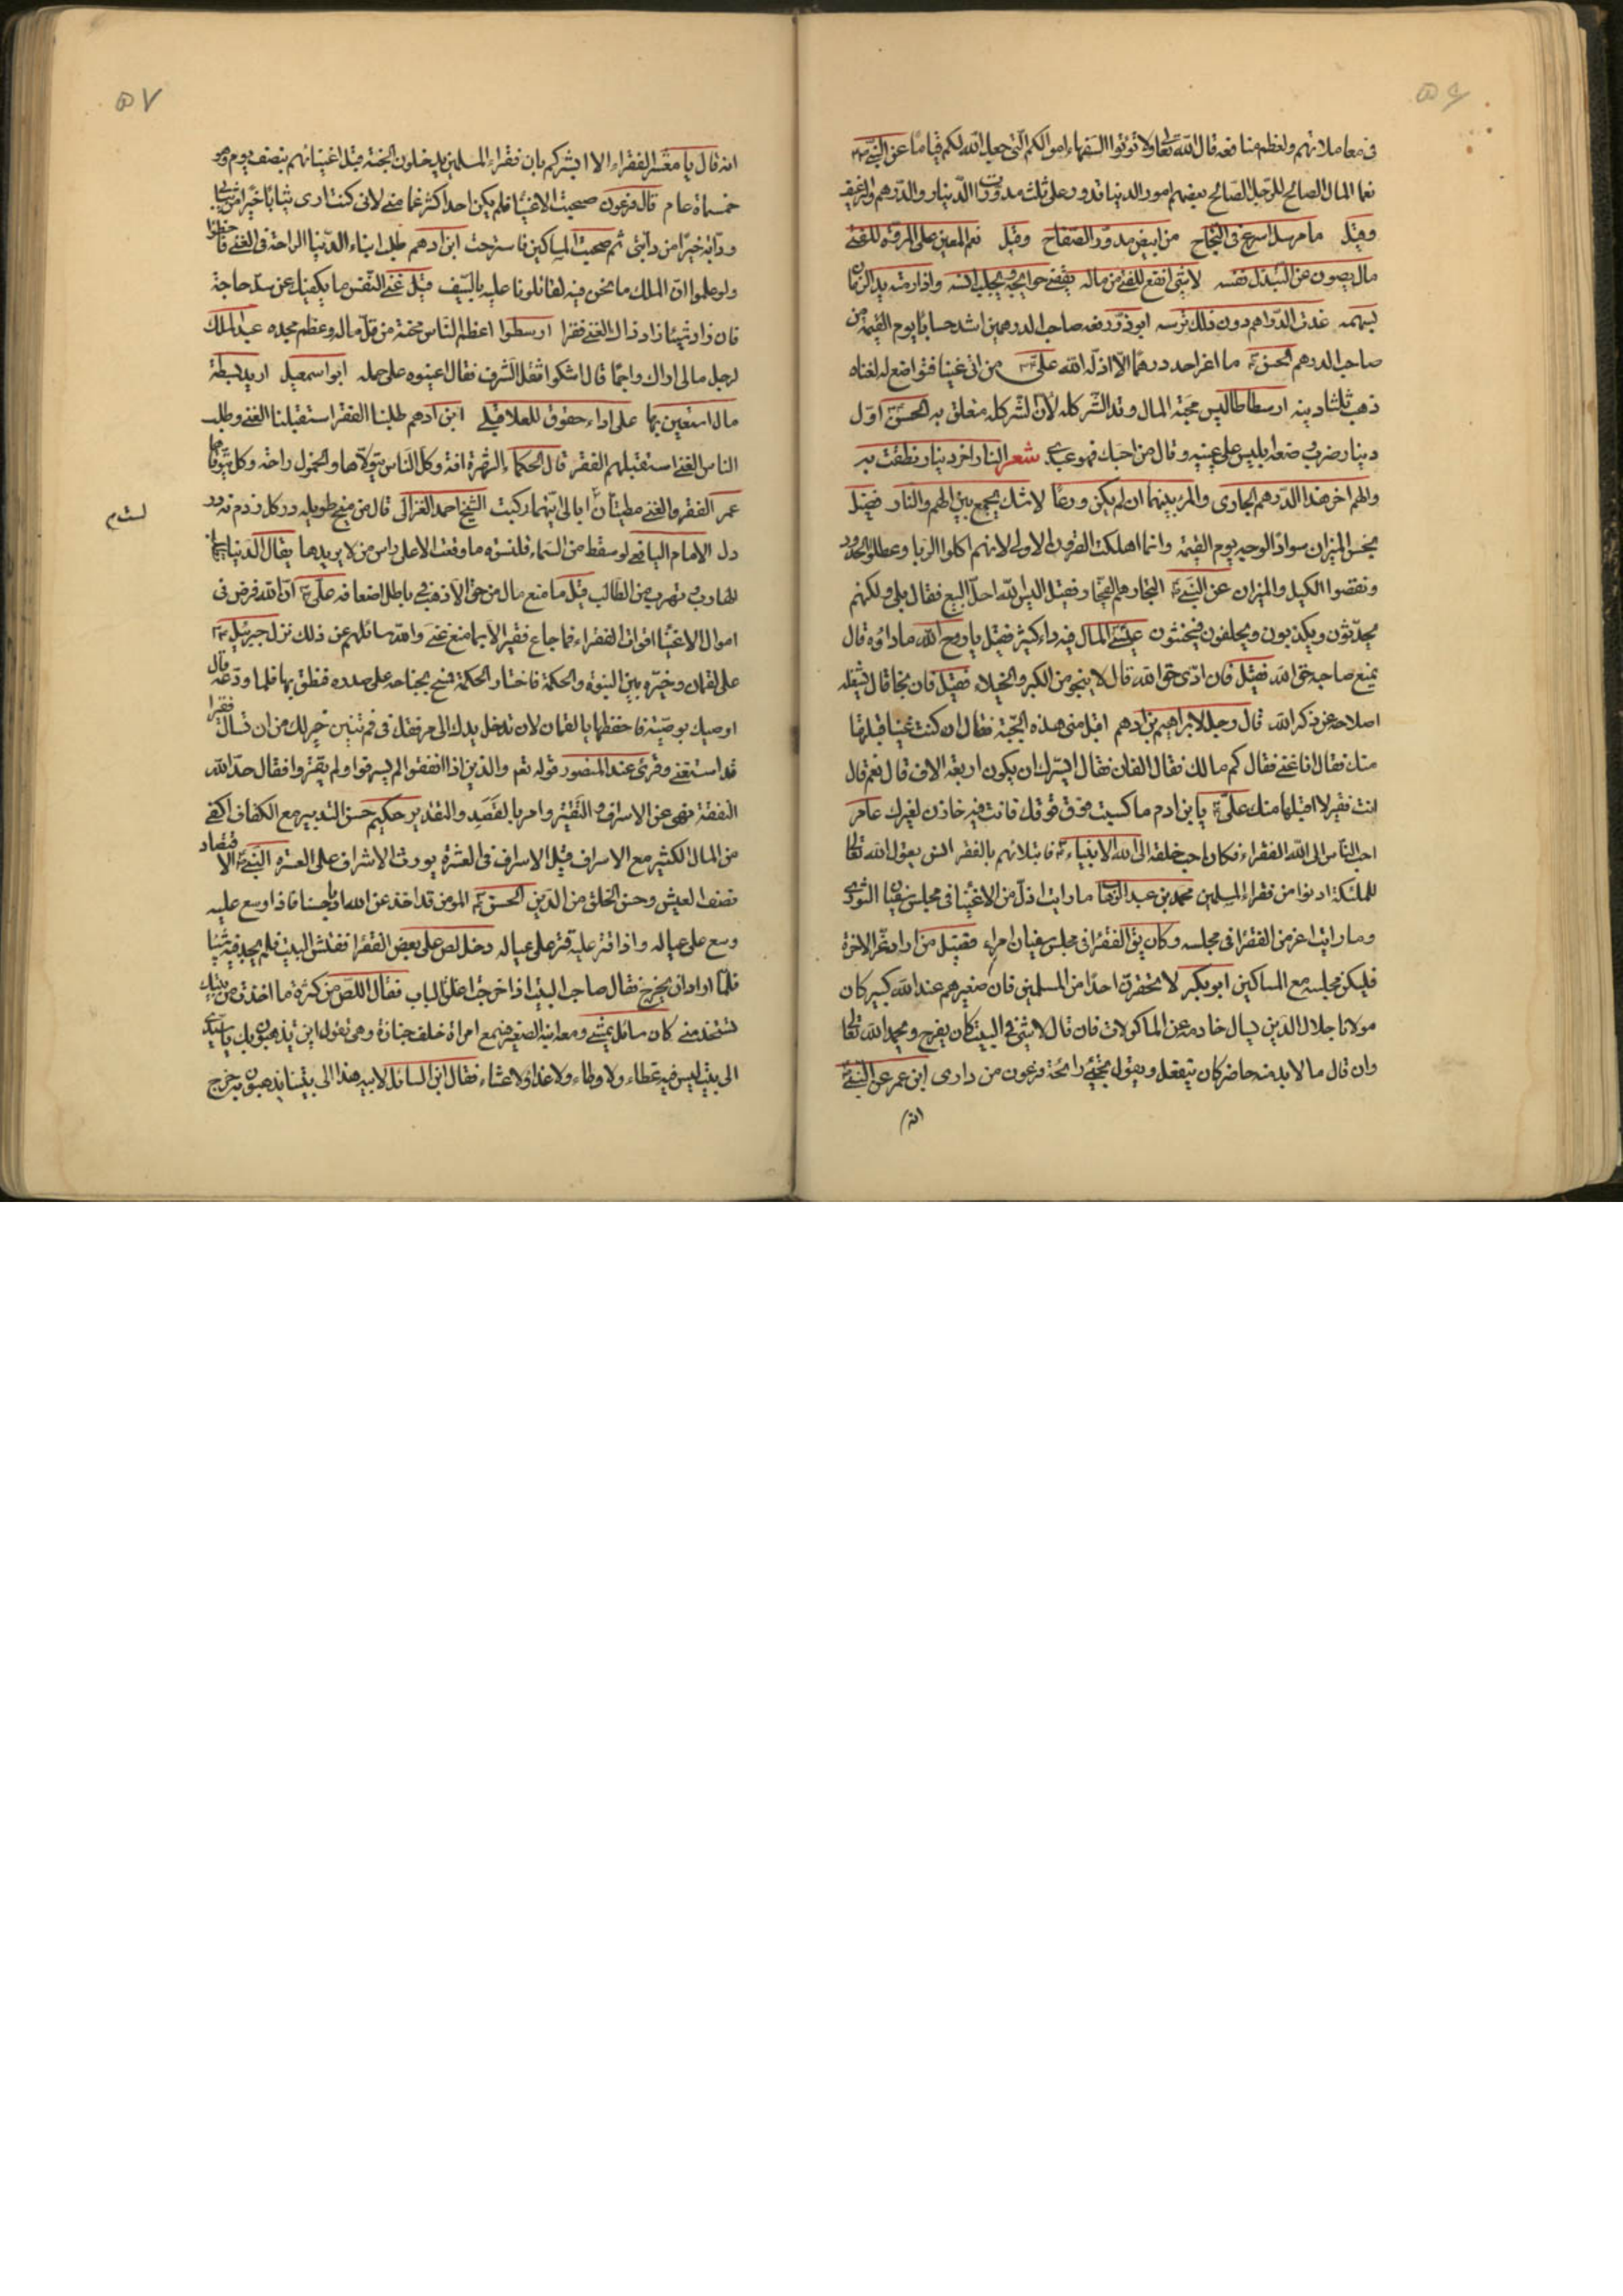 ۵۶
فى معاملاتهم ولعظم منافعه قال الله تعالى ولا تؤتوا السفهاء اموالكم التى جعل الله لكم قياما عن النبى
نعما المال الصالح للرجل الصالح بعضهم امور الدنيا تدور على ثلث مدورات الدينار والدرهم والرغيف
وقيل ما مرسل اسرع فى النجاح من ابيض مدور الصفاح وقيل نعم المعين على المروة للفتى
مال يصون عن التبذل نفسه لا شئ انفع للفتى من ماله يقضى حوايجه ويجلب انسه واذا رمته يد الزمان
بسهمه غدت الدراهم دون ذلك ترسه ابو ذر رفعه صاحب الدرهمين اشد حسابا يوم القيمة من
صاحب الدرهم الحسن ما اعز احد درهما الا اذله الله على من اتى غنيا فتواضع له لغناه
ذهب ثلثا دينه ارسطاطاليس محبة المال وتد الشر كله لان الشر كله متعلق به الحسن اول
دينار ضرب وضعه ابليس على عينيه وقال من احبك فهو عبدى شعر النار اخر دينار نطقت به
والهم اخر هذا الدرهم الجارى والمرء بينهما ان لم يكن ورعا لا شك يجمع بين الهم والنار فضيل
بخس الميزان سواد الوجه يوم القيمة وانما اهلكت القرون الاولى لانهم اكلوا الربا وعطلوا الحدود
ونقصوا الكيل والميزان عن النبى التجار هم الفجار فقيل اليس الله احل البيع فقال بلى ولكنهم
يحدثون ويكذبون ويحلفون فيحنثون عيسى المال فيه داء كثير فقيل يا روح الله ما داؤه قال
يمنع صاحبه حق الله فقيل فان ادى حق الله قال لا ينجو من الكبر والخيلاء فقيل فان نجا قال يشغله
اصلاحه عن ذكر الله قال رجل لابراهيم بن ادهم اقبل منى هذه الجبة فقال ان كنت غنيا قبلتها
منك فقال انا غنى فقال كم مالك فقال الفان فقال ايسرك ان يكون اربعة الاف قال نعم قال
انت فقير لا اقبلها منك على يا بن ادم ما كسبت فوق قوتك فانت فيه خازن لغيرك عامر
احب الناس الى الله الفقراء فكان احب خلقه الى الله الانبياء فابتلاهم بالفقر انس يقول الله تعالى
للملئكة ادنوا من فقراء المسلمين محمد بن عبد الوهاب ما رايت اذل من الاغنيا فى مجلس سفيان الثورى
وما رايت اعز من الفقرا فى مجلسه وكان يق الفقرا فى مجلس سفيان امراء فقيل من اراد عز الاخرة
فليكن مجلسه مع المساكين ابو بكر لا تحقرن احدا من المسلمين فان صغيرهم عند الله كبير كان
مولانا جلال الدين يسال خادمه عن الماكولات فان قال لا شئ فى البيت كان يفرح ويحمد الله تعالى
وان قال ما لا بد منه حاضر كان ينفعل ويقول تجئ رائحة فرعون من دارى ابن عمر عن النبى
انه
۵۷
انه قال يا معشر الفقراء الا ابشركم بان فقراء المسلمين يدخلون الجنة قبل اغنيائهم بنصف يوم وهو
خمسمائة عام قال فرعون صحبت الاغنيا فلم يكن احد اكثر غما منى لانى كنت ارى ثيابا خيرا من ثيابى
ودابة خيرا من دابتى ثم صحبت المساكين فاسترحت ابن ادهم طلب ابناء الدنيا الراحة فى الغنى فاخطؤا
ولو علموا ان الملك ما نحن فيه لقاتلونا عليه بالسيف قيل غنى النفس ما يكفيك عن سد حاجة
فان زاد شيئا زاد ذاك الغنى فقرا ارسطوا اعظم الناس محنة من قل ماله وعظم مجده عبد الملك
لرجل مالى اراك واجما قال اشكو ثقل الشرف فقال اعينوه على حمله ابو اسمعيل اريد بسطة
مال استعين بها على اداء حقوق للعلا قبلى ابن ادهم طلبنا الفقر استقبلنا الغنى وطلب
الناس الغنى استقبلهم الفقر قال الحكماء الشهرة افة وكل الناس يتولاها والخمول راحة وكل يتوقاها
عمر الفقر والغنى مطيتان ابالى ايتهما ركبت الشيخ احمد الغزالى قال من ميخ طويله در كل زدم نه در
دل الامام اليافعى لو سقط من السماء قلنسوه ما وقعت الا على راس من لا يريدها يقال الدنيا
للهارب وتهرب من الطالب قيل ما منع مال من حق الا ذهب فى باطل اضعافه على ان الله فرض فى
اموال الاغنيا اقوات الفقراء فما جاع فقير الا بما منع غنى والله سائلهم عن ذلك نزل جبرئيل
على لقمان وخيره بين النبوة والحكمة فاختار الحكمة فمسح بجناحه على صدره فنطق بها فلما ودعه قال
اوصيك بوصية فاحفظها يا لقمان لان تدخل يدك الى مرفقك فى فم تنين خير لك من ان تسال فقيرا
قد استغنى وقرئ عند المنصور قوله تعم والذين اذا انفقوا لم يسرفوا ولم يقتروا فقال حد الله
النفقة نهى عن الاسراف والتقتير وامر بالقصد والتقدير حكيم حسن التدبير مع الكفاف اكفى
من المال الكثير مع الاسراف قيل الاسراف فى العشرة يورث الاشراف على العسرة النبى الاقتصاد
نصف العيش وحسن الخلق من الدين الحسن المومن قد اخذ عن الله ادبا حسنا فاذا وسع عليه
وسع على عياله واذا قتر عليه قتر على عياله دخل لص على بعض الفقرا ففتش البيت فلم يجد فيه شيئا
فلما اراد ان يخرج فقال صاحب البيت اذا خرجت اغلق الباب فقال اللص من كثرة ما اخذت من بيتك
تستخدمنى كان سائل يمشى ومعه ابنه الصغير فسمع امراة خلف جنازة وهى تقول اين يذهبون بك يا سيدى
الى بيت ليس فيه غطاء ولا وطاء ولا غداء ولا عشاء فقال ابن السائل لابيه هذا الى بيتنا يذهبون به خرج